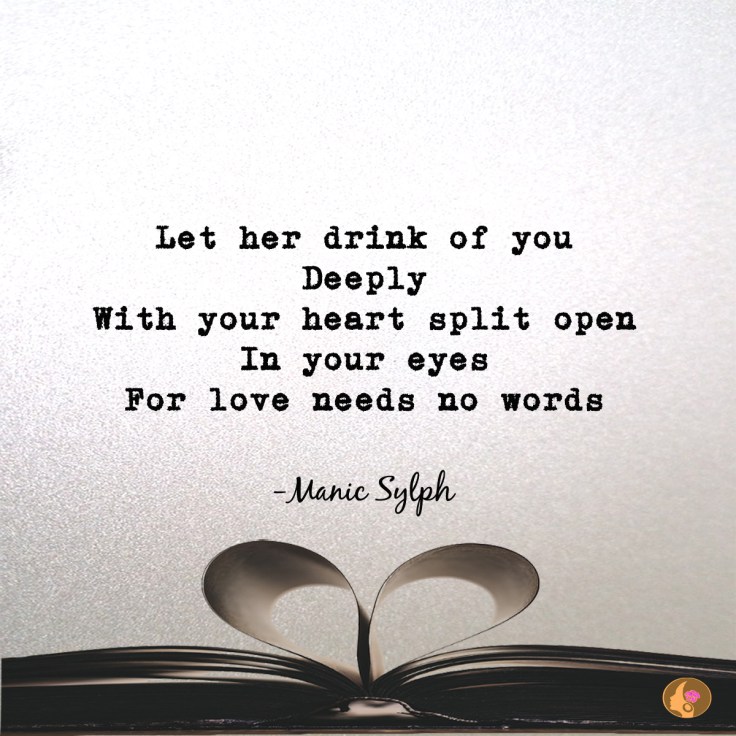 Let her drink of you
Deeply
With your heart split open
In your eyes
For love needs no words
-Manic Sylph